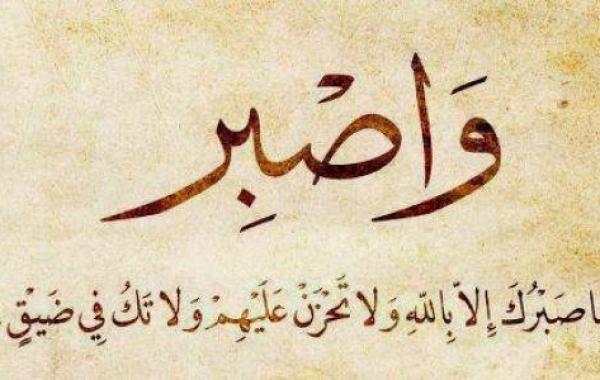 وَاصْبِر
صَبْرُكَ إِلاَّ بِاللّهِ وَلا تَحْزَنْ عَلَيْهِمْ وَلا تَكُ فِي ضَيْقٍ